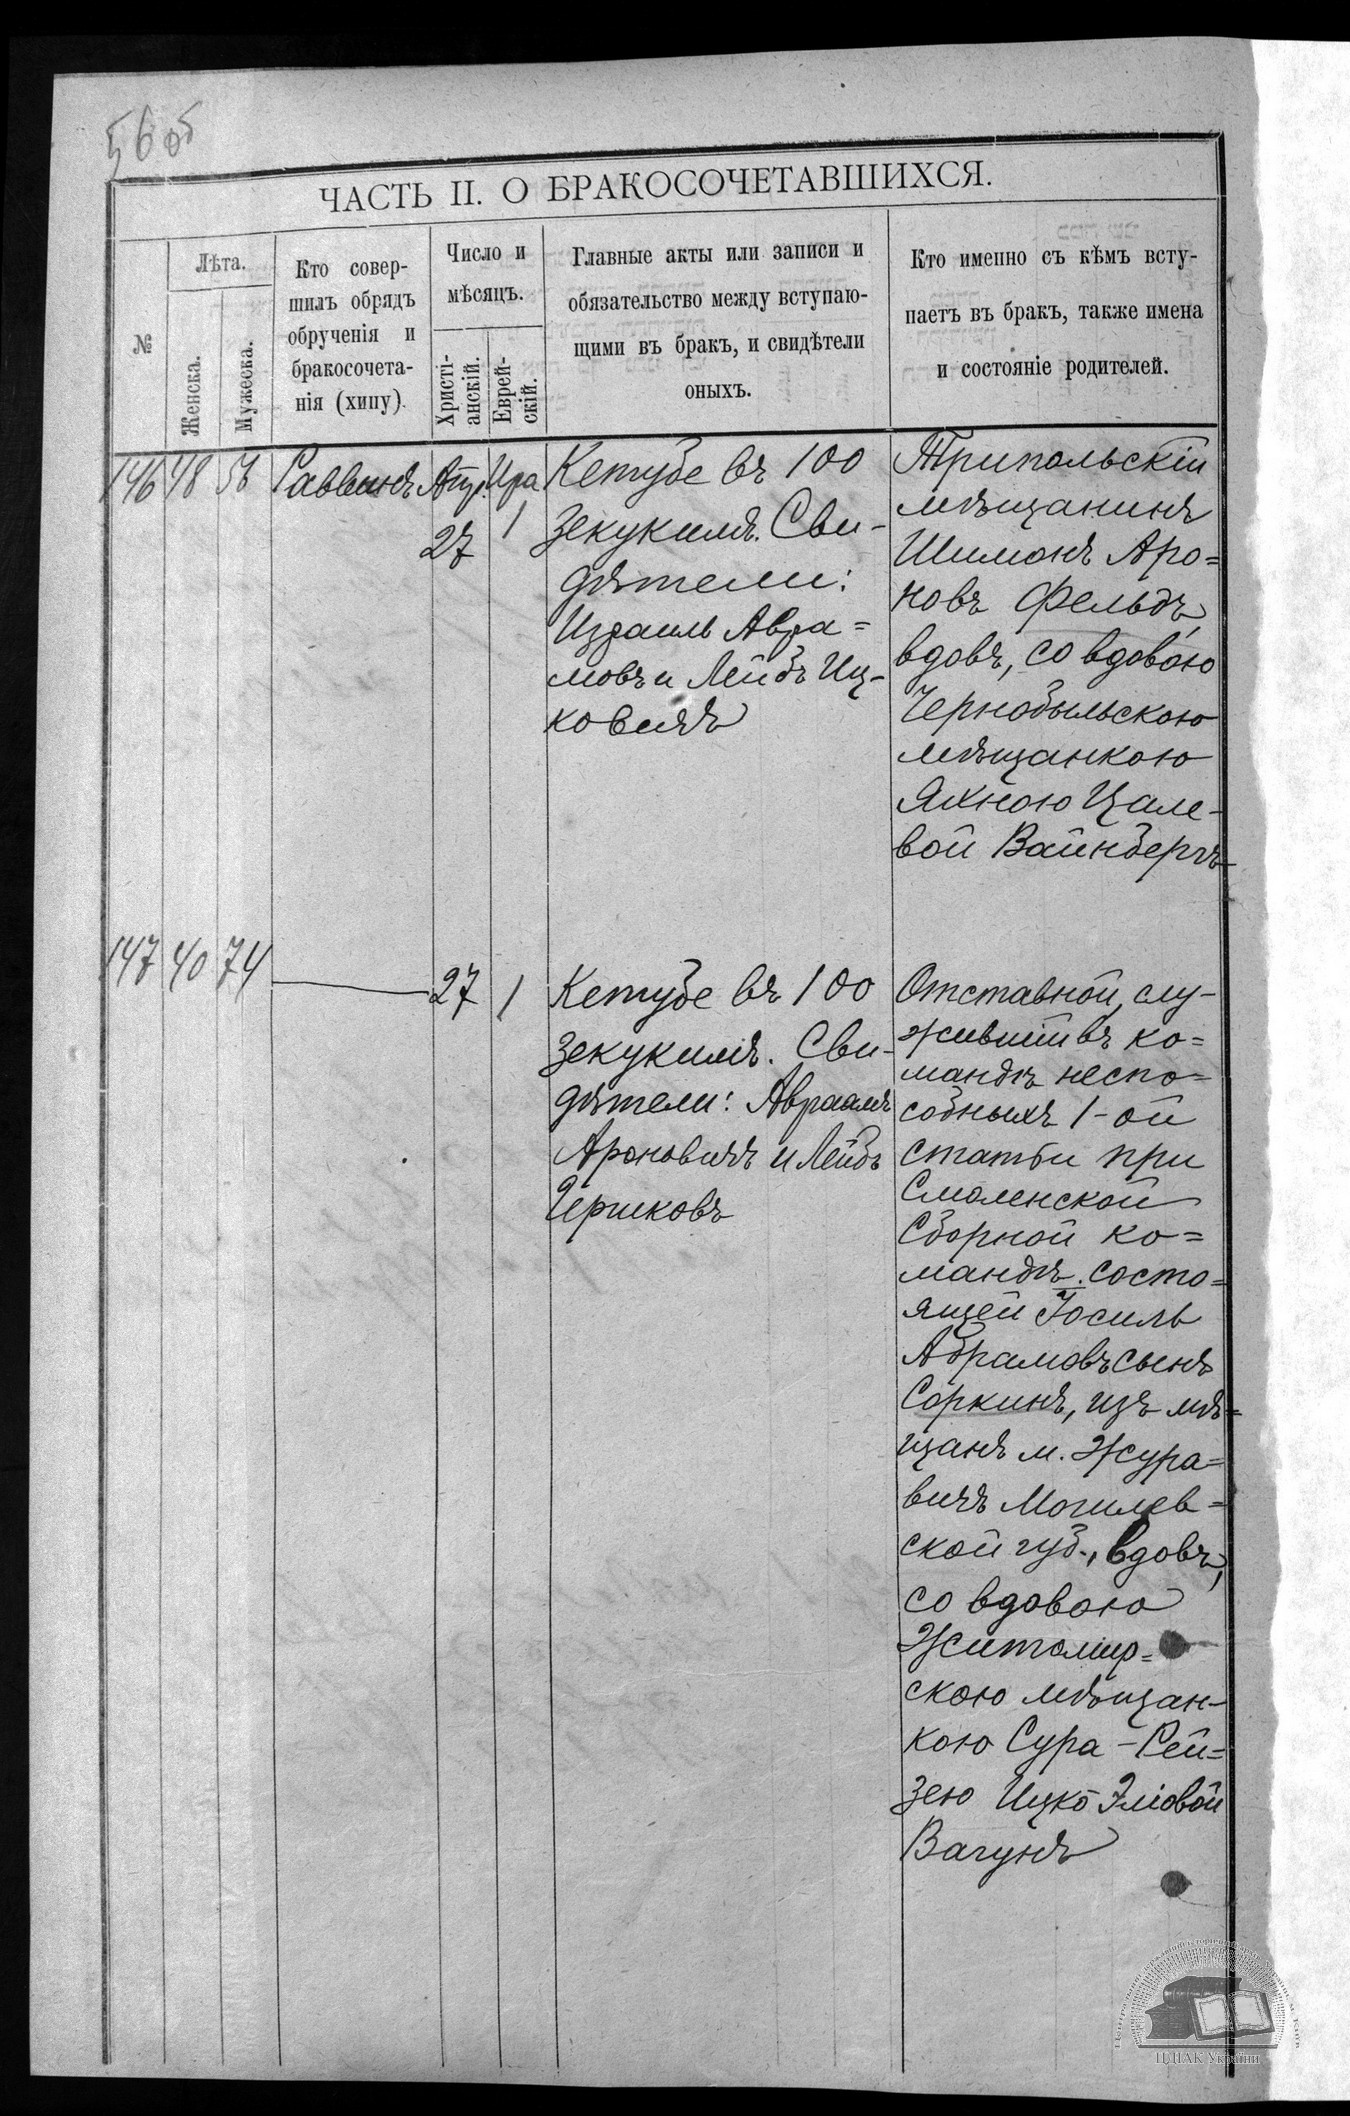 56об
ЧАСТЬ II. О БРАКОСОЧЕТАВШИХСЯ.
№
Лѣта.
Женска.
Мужеска.
Кто совер-
шилъ обрядъ
обрученія и
бракосочета-
нія (хипу).
Число и
мѣсяцъ.
Христі-
анскій.
Еврей-
скій.
Главные акты или записи и
обязательство между вступаю-
щими въ бракъ, и свидѣтели
оныхъ.
Кто именно съ кѣмъ всту-
паетъ въ бракъ, также имена
и состояніе родителей.
146
48
56
Раввинъ
Апр.
27
Ира
1
Кетубе въ 100
зекукимъ. Сви-
дѣтели:
Израиль Авра=
мовъ и Лейбъ Иц-
ковичъ
Трипольскій
мѣщанинъ
Шимонъ Аро=
новъ Фельдъ,
вдовъ, со вдовою
Чернобыльскою
мѣщанкою
Яхною Цале-
вой Вайнбергъ
147
40
74
27
1
Кетубе въ 100
зекукимъ. Сви-
дѣтели: Авраамъ
Ароновичъ и Лейбъ
Гершковъ
Отставной, слу-
жившій въ ко=
мандѣ неспо=
собныхъ 1-ой
статьи при
Смоленской
Сборной ко=
мандѣ состо=
ящей Іосиль
Абрамовъ сынъ
Соркинъ, изъ мѣ=
щанъ м. Жура=
вичъ Могилев=
ской губ., вдовъ,
со вдовою
Житомир=
скою мѣщан-
кою Сура-Рей=
зею Ицко Эліовой
Вагунъ
ЦДІАК України